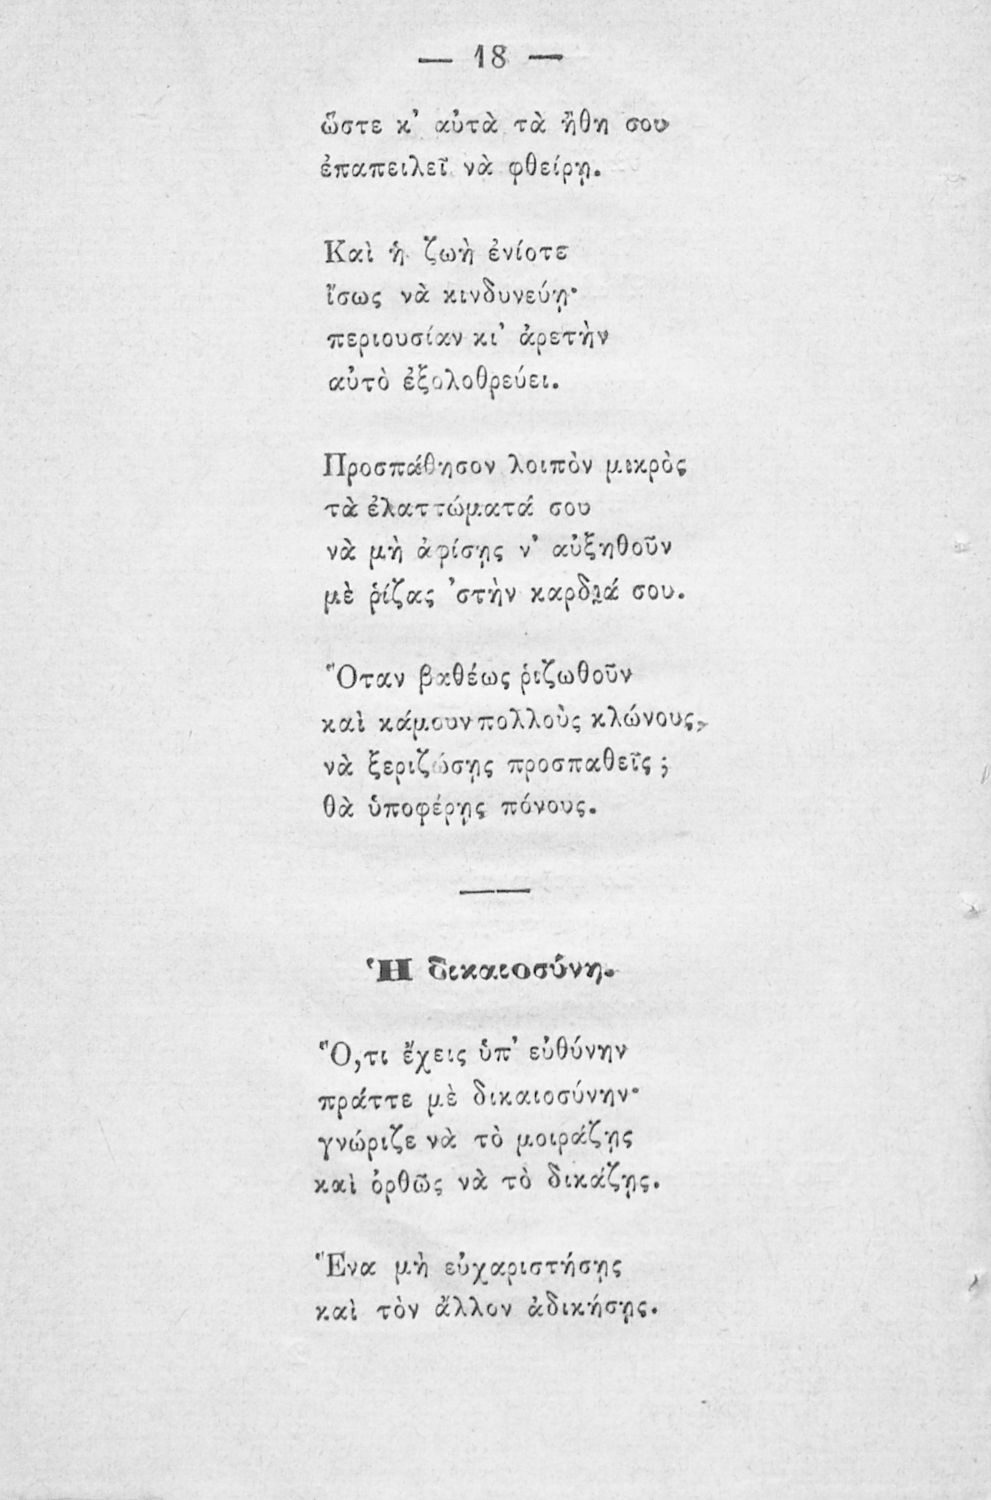 — 18 —
ὥστε κ’ αὐτὰ τὰ ἤθη σου
ἐπαπειλεῖ νὰ φθείρῃ.
Καὶ ἡ ζωὴ ἐνίοτε
ἴσως νὰ κινδυνεύῃ·
περιουσίαν κι’ ἀρετὴν
αὐτὸ ἐξολοθρεύει.
Προσπάθησον λοιπὸν μικρὸς
τὰ ἐλαττώματά σου
νὰ μὴ ἀφίσῃς ν’ αὐξηθοῦν
μὲ ῥίζας ’στὴν καρδιά σου.
Ὅταν βαθέως ῥιζωθοῦν
καὶ κάμουν πολλοὺς κλώνους,
νὰ ξεριζώσῃς προσπαθεῖς ;
θὰ ὑποφέρῃς πόνους.
Ἡ δικαιοσύνη.
Ὅ,τι ἔχεις ὑπ’ εὐθύνην
πράττε μὲ δικαιοσύνην·
γνώριζε νὰ τὸ μοιράζῃς
καὶ ὀρθῶς νὰ τὸ δικάζῃς.
Ἕνα μὴ εὐχαριστήσῃς
καὶ τὸν ἄλλον ἀδικήσῃς.